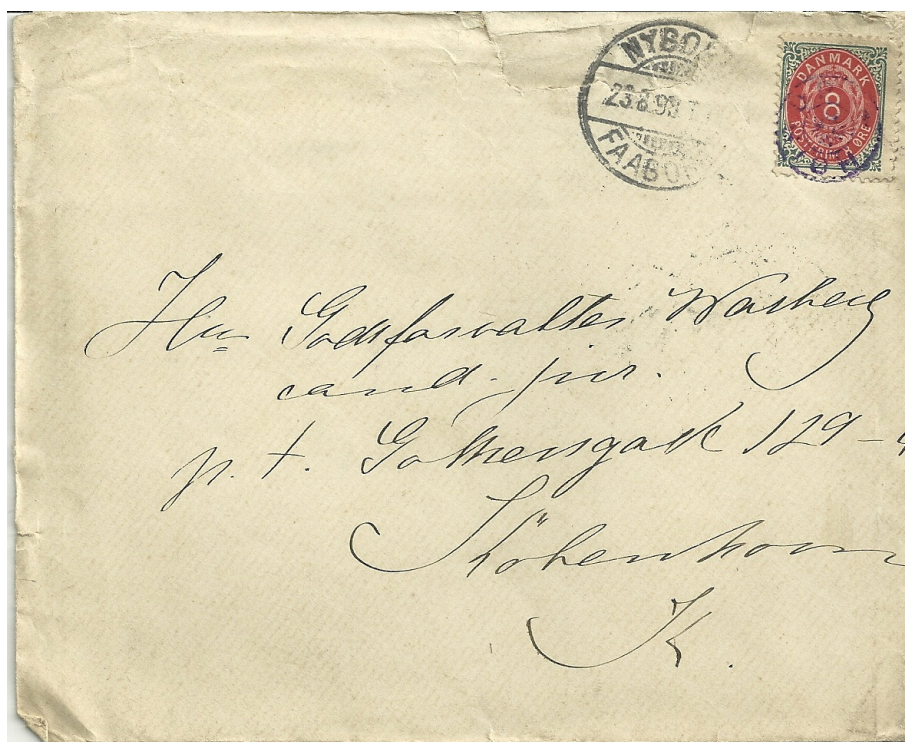 NYBO
23.8.98
FAABO
DANMARK
8
POSTFRIM. H ØRE
Hrr Godsforvalter Warberg
cand. jur.
p. t. Gothersgade 129-4
Köbenhavn
K.